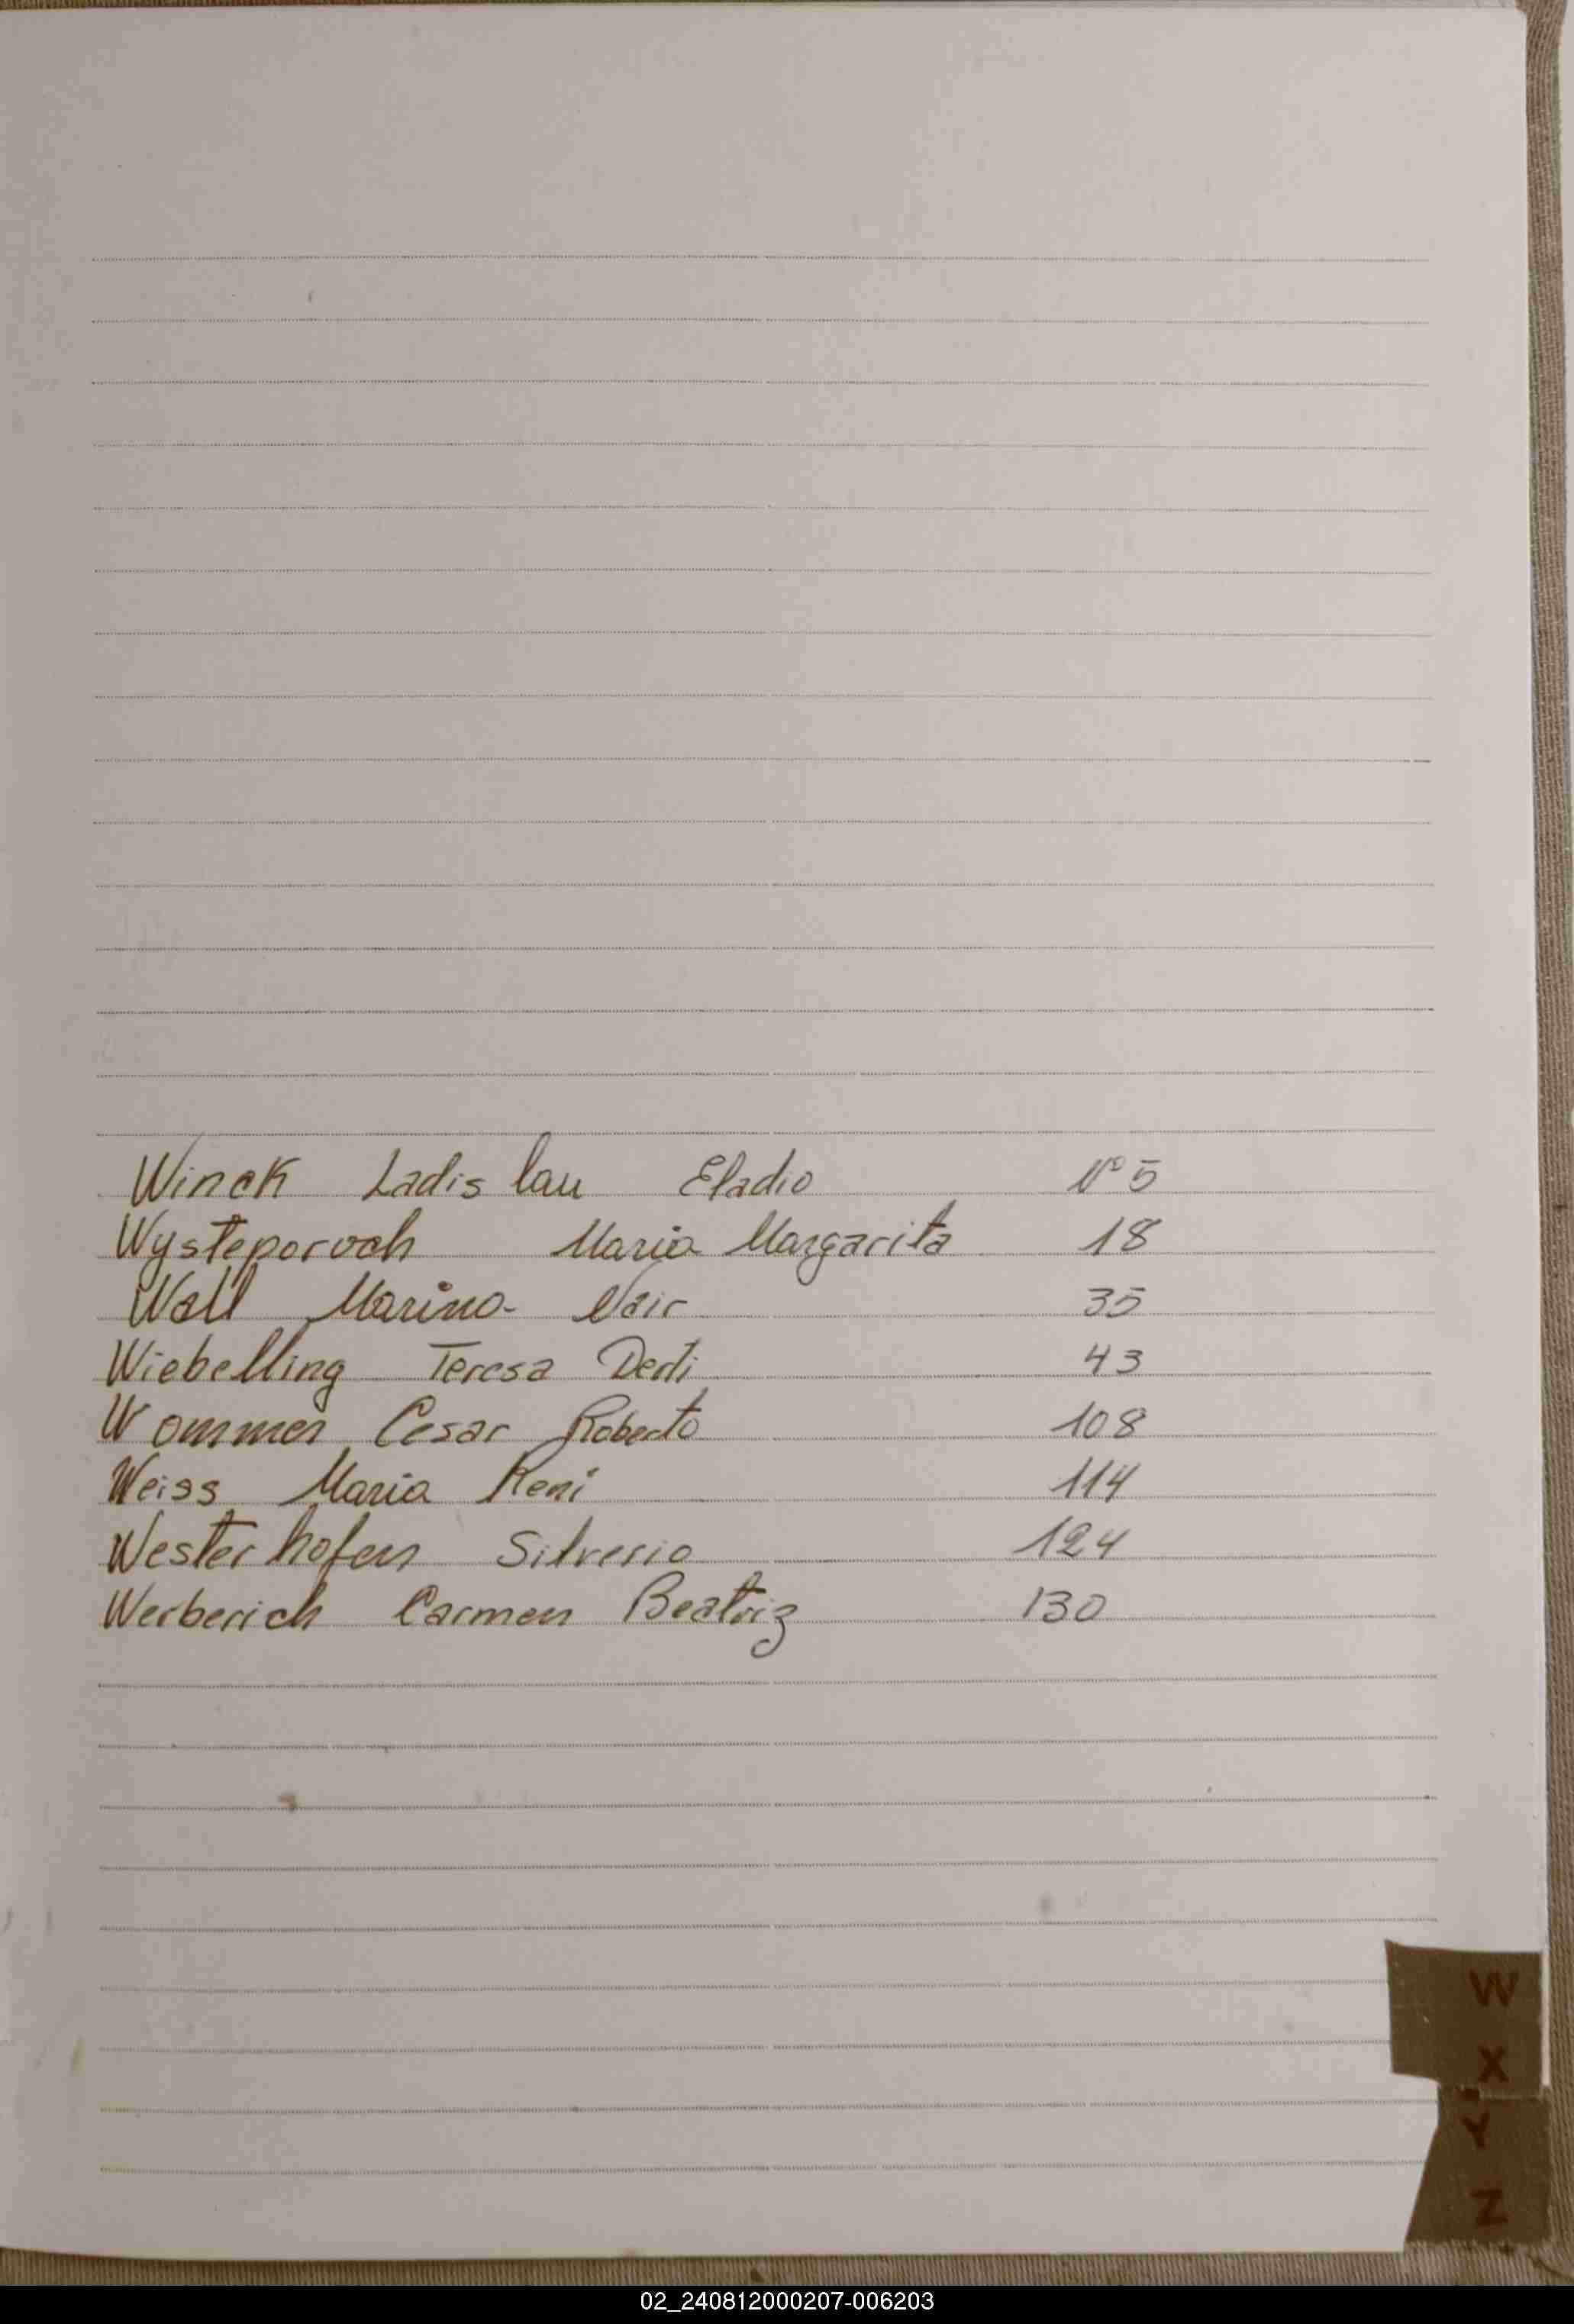 Winck Ladislau Eladio Nº 5
Wysteporoch Maria Margarita 18
Wall Marino- Nair 35
Wiebelling Teresa Derli 43
Wommer Cesar Roberto 108
Weiss Maria Reni 114
Westerhofen Silverio 124
Werberich Carmen Beatriz 130
W
X
Y
Z
02_240812000207-006203